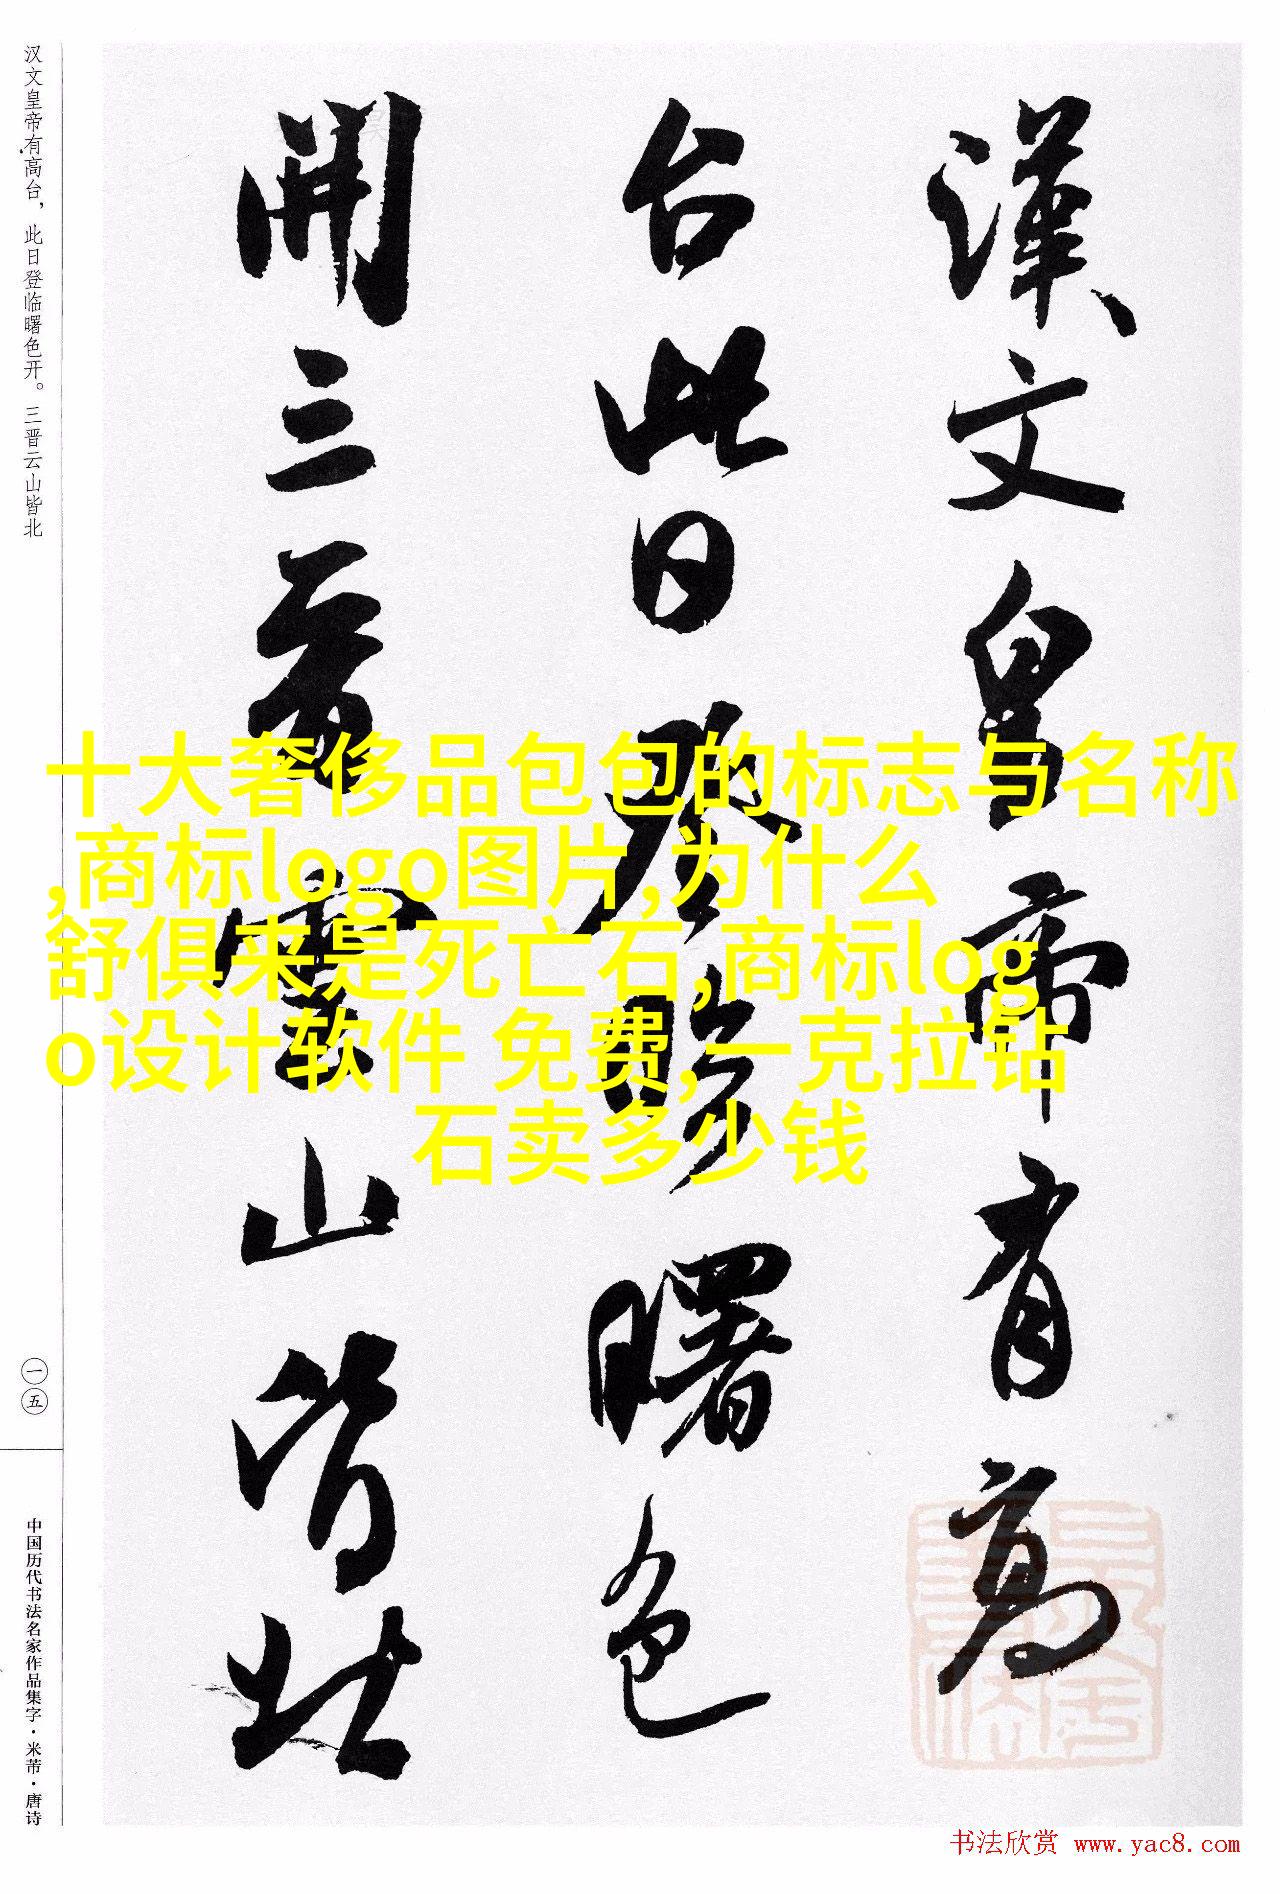 漢文皇帝有高
台此日登臨曙色
開三晉雲山皆北
汉文皇帝有高台，此日登临曙色开。三晋云山皆北
一五
中国历代书法名家作品集字·米芾·唐诗
十大奢侈品包包的标志与名称
,商标logo图片,为什么
舒俱来是死亡石,商标log
o设计软件 免费,一克拉钻
石卖多少钱
书法欣赏 www.yac8.com